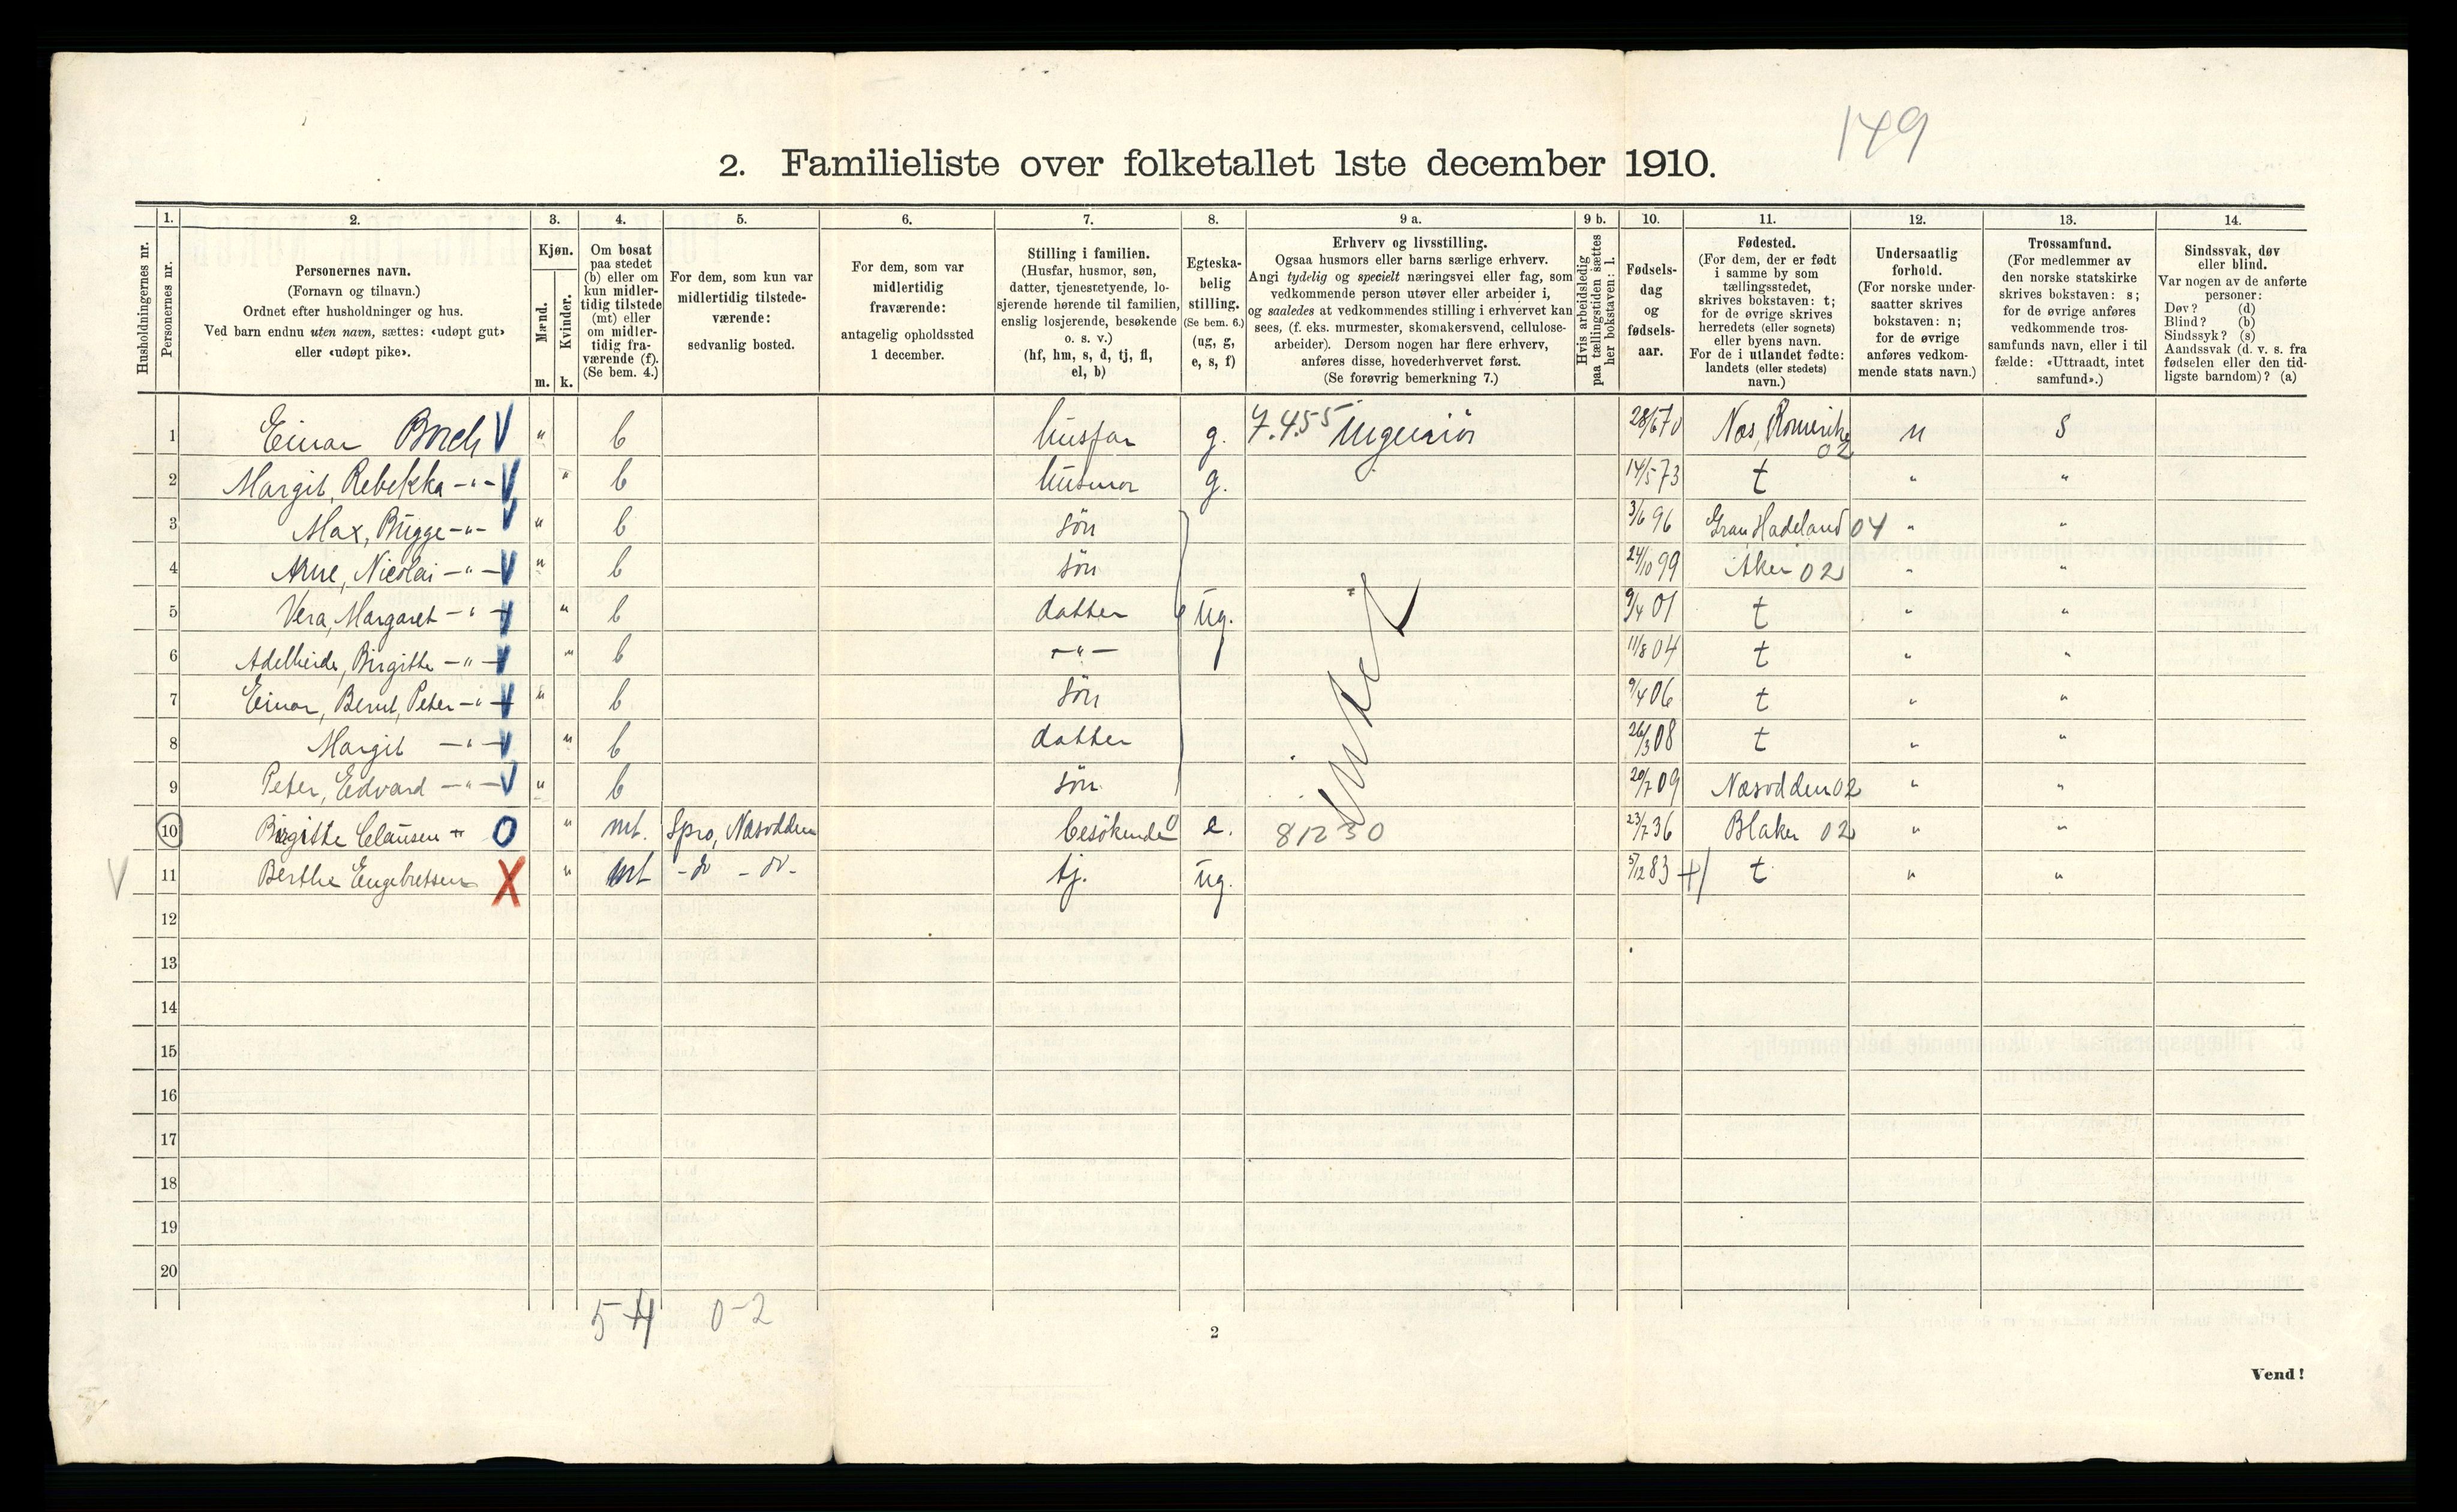 149
2. Familieliste over folketallet 1ste december 1910.
1. 2. 3. 4. 5. 6. 7. 8. 9 a. 9 b. 10. 11. 12. 13. 14.
Husholdningernes nr.
Personernes nr.
Personernes navn.
(Fornavn og tilnavn.)
Ordnet efter husholdninger og hus.
Ved barn endnu uten navn, sættes: «udøpt gut»
eller «udøpt pike».
Kjøn.
Mænd.
Kvinder.
m. k.
Om bosat
paa stedet
(b) eller om
kun midler-
tidig tilstede
(mt) eller
om midler-
tidig fra-
værende (f).
(Se bem. 4.)
For dem, som kun var
midlertidig tilstede-
værende:
sedvanlig bosted.
For dem, som var
midlertidig
fraværende:
antagelig opholdssted
1 december.
Stilling i familien.
(Husfar, husmor, søn,
datter, tjenestetyende, lo-
sjerende hørende til familien,
enslig losjerende, besøkende
o. s. v.)
(hf, hm, s, d, tj, fl,
el, b)
Egteska-
belig
stilling.
(Se bem. 6.)
(ug, g,
e, s, f)
Erhverv og livsstilling.
Ogsaa husmors eller barns særlige erhverv.
Angi tydelig og specielt næringsvei eller fag, som
vedkommende person utøver eller arbeider i,
og saaledes at vedkommendes stilling i erhvervet kan
sees, (f. eks. murmester, skomakersvend, cellulose-
arbeider). Dersom nogen har flere erhverv,
anføres disse, hovederhvervet først.
(Se forøvrig bemerkning 7.)
Hvis arbeidsledig
paa tællingstiden sættes
her bokstaven: l.
Fødsels-
dag
og
fødsels-
aar.
Fødested.
(For dem, der er født
i samme by som
tællingsstedet,
skrives bokstaven: t;
for de øvrige skrives
herredets (eller sognets)
eller byens navn.
For de i utlandet fødte:
landets (eller stedets)
navn.)
Undersaatlig
forhold.
(For norske under-
saatter skrives
bokstaven: n;
for de øvrige
anføres vedkom-
mende stats navn.)
Trossamfund.
(For medlemmer av
den norske statskirke
skrives bokstaven: s;
for de øvrige anføres
vedkommende tros-
samfunds navn, eller i til
fælde: «Uttraadt, intet
samfund».)
Sindssvak, døv
eller blind.
Var nogen av de anførte
personer:
Døv? (d)
Blind? (b)
Sindssyk? (s)
Aandssvak (d. v. s. fra
fødselen eller den tid-
ligste barndom)? (a)
1 Einar Borch V " b husfar g. 7.455 Ingeniör 28/6 70 Næs, Romerike 02 n s
2 Margit, Rebekka -"- V " b husmor g. 14/5 73 t " "
3 Max, Bugge -"- V " b sön 3/6 96 Gran, Hadeland 04 " "
4 Arne, Nicolai -"- V " b sön 24/10 99 Aker 02 " "
5 Vera, Margaret -"- V " b datter ug. 9/4 01 t " "
6 Adelheide, Birgitte -"- V " b -"- 11/8 04 t " "
7 Einar, Bernt, Peter -"- V " b sön 9/4 06 t " "
8 Margit -"- V " b datter 26/3 08 t " "
9 Peter, Edvard -"- V " b sön 20/7 09 Næsodden 02 " "
10 Birgitte Clausen O " mt. Spro, Næsodden besökende e. 81230 23/7 36 Blaker 02 " "
V 11 Berthe Engebretsen X " mt -do- -do- tj. ug. 5/12 83 t " "
12
13
14
15
16
17
18
19
20
5-4 0-2
2
Vend!